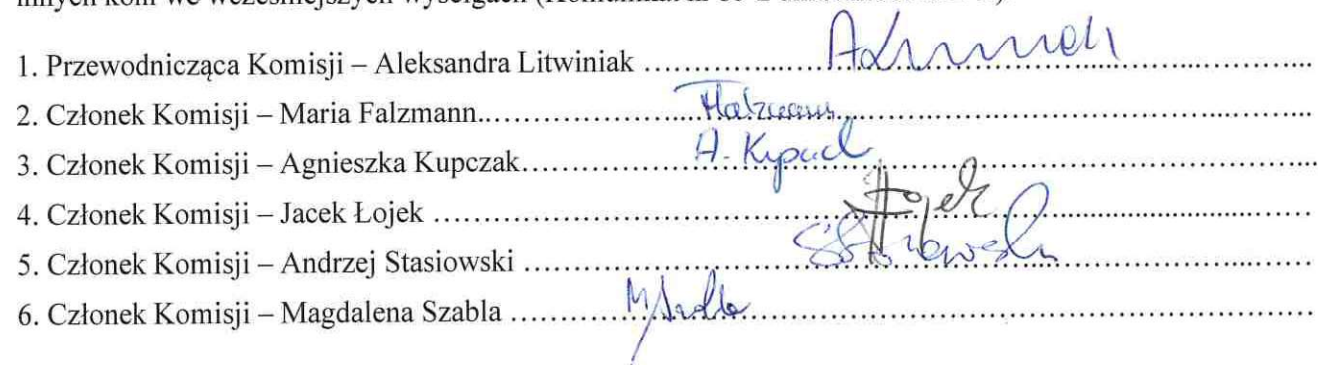 innych koni we wcześniejszych wyścigach (Komunikat nr
1. Przewodnicząca Komisji – Aleksandra Litwiniak ....................................................................
2. Członek Komisji – Maria Falzmann....................................................................
3. Członek Komisji – Agnieszka Kupczak....................................................................
A. Kupcz
4. Członek Komisji – Jacek Łojek ....................................................................
Łojek
5. Członek Komisji – Andrzej Stasiowski ....................................................................
6. Członek Komisji – Magdalena Szabla ....................................................................